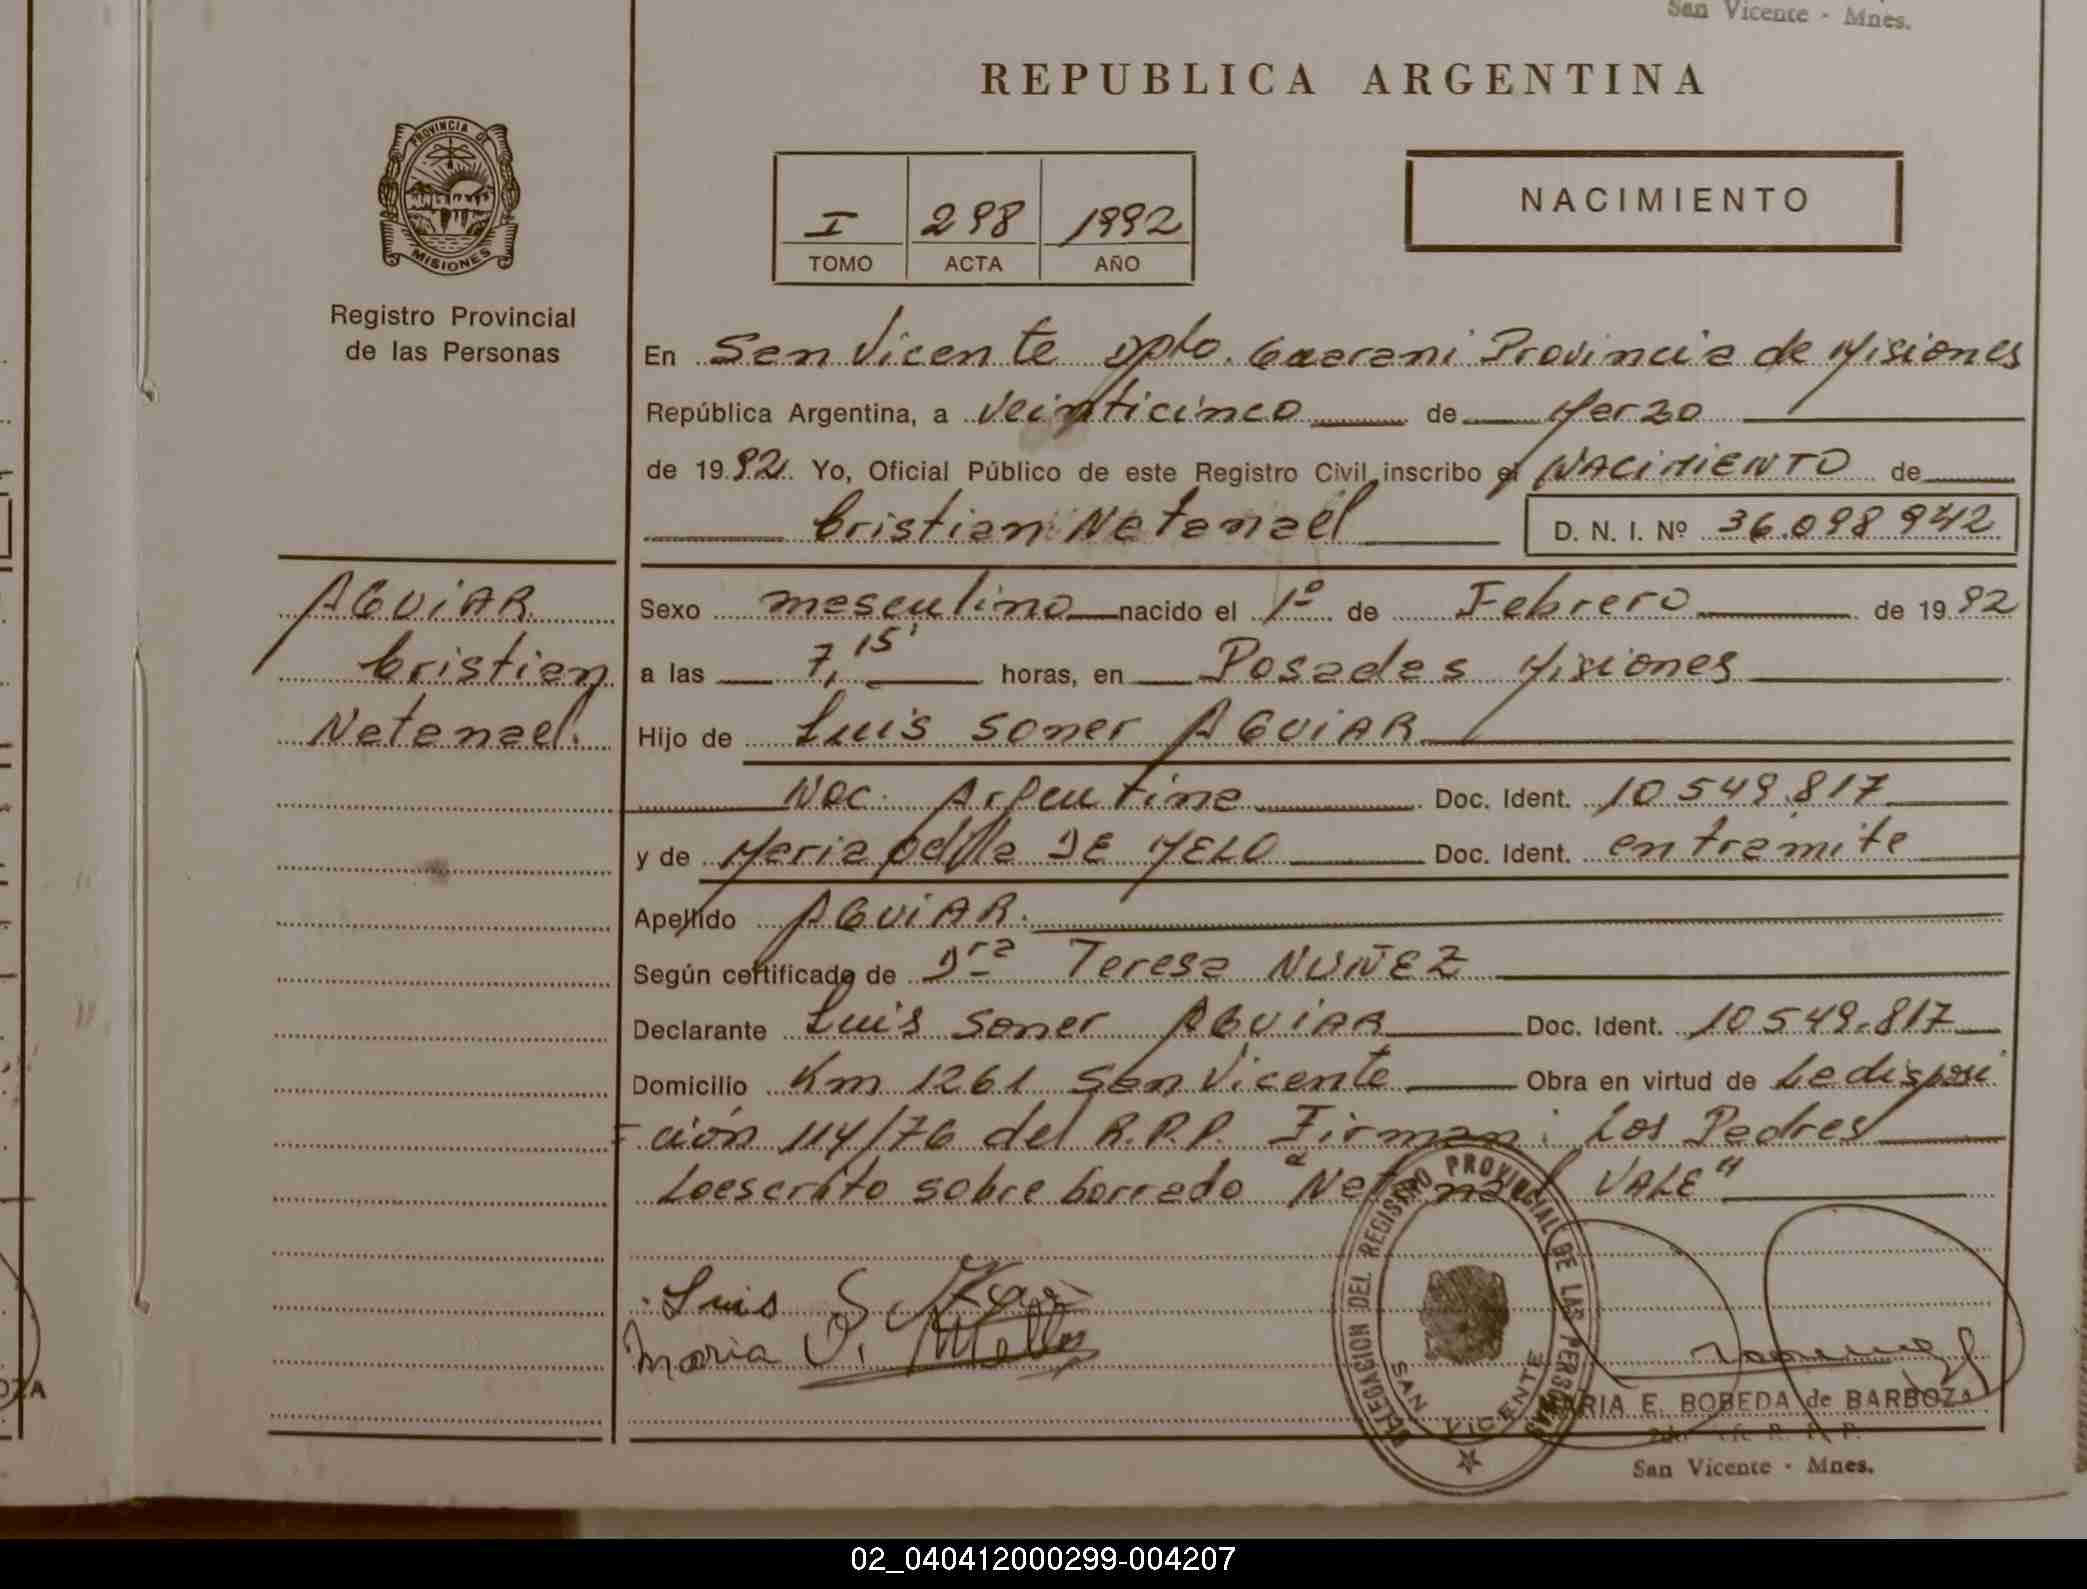 San Vicente - Mnes.
REPUBLICA ARGENTINA
PROVINCIA DE
MISIONES
Registro Provincial
de las Personas
I 298 1992
TOMO ACTA AÑO
NACIMIENTO
En San Vicente Dpto. Guarani Provincia de Misiones
República Argentina, a veinticinco de Marzo
de 1992. Yo, Oficial Público de este Registro Civil inscribo el NACIMIENTO de
Cristian Natanael D. N. I. Nº 36.098 942
AGUIAR
Cristian
Natanael.
Sexo masculino nacido el 1º de Febrero de 1992
a las 7,15' horas, en Posadas Misiones
Hijo de Luis Soner AGUIAR
Nac. Argentina Doc. Ident. 10 549.817
y de Maria Odila DE MELO Doc. Ident. en trámite
Apellido AGUIAR.
Según certificado de Dra Teresa NUÑEZ
Declarante Luis Soner AGUIAR Doc. Ident. 10 549.817
Domicilio Km 1261 San Vicente Obra en virtud de La disposi
=ción 114/76 del R.P.P. Firman: Los Padres
Lo escrito sobre borrado "Natanael VALE"
Luis S.
Maria O. Mello
DELEGACION DEL REGISTRO PROVINCIAL DE LAS PERSONAS
SAN VICENTE
MARIA E. BOBEDA de BARBOZA
R. P. P.
San Vicente - Mnes.
OZA
02_040412000299-004207